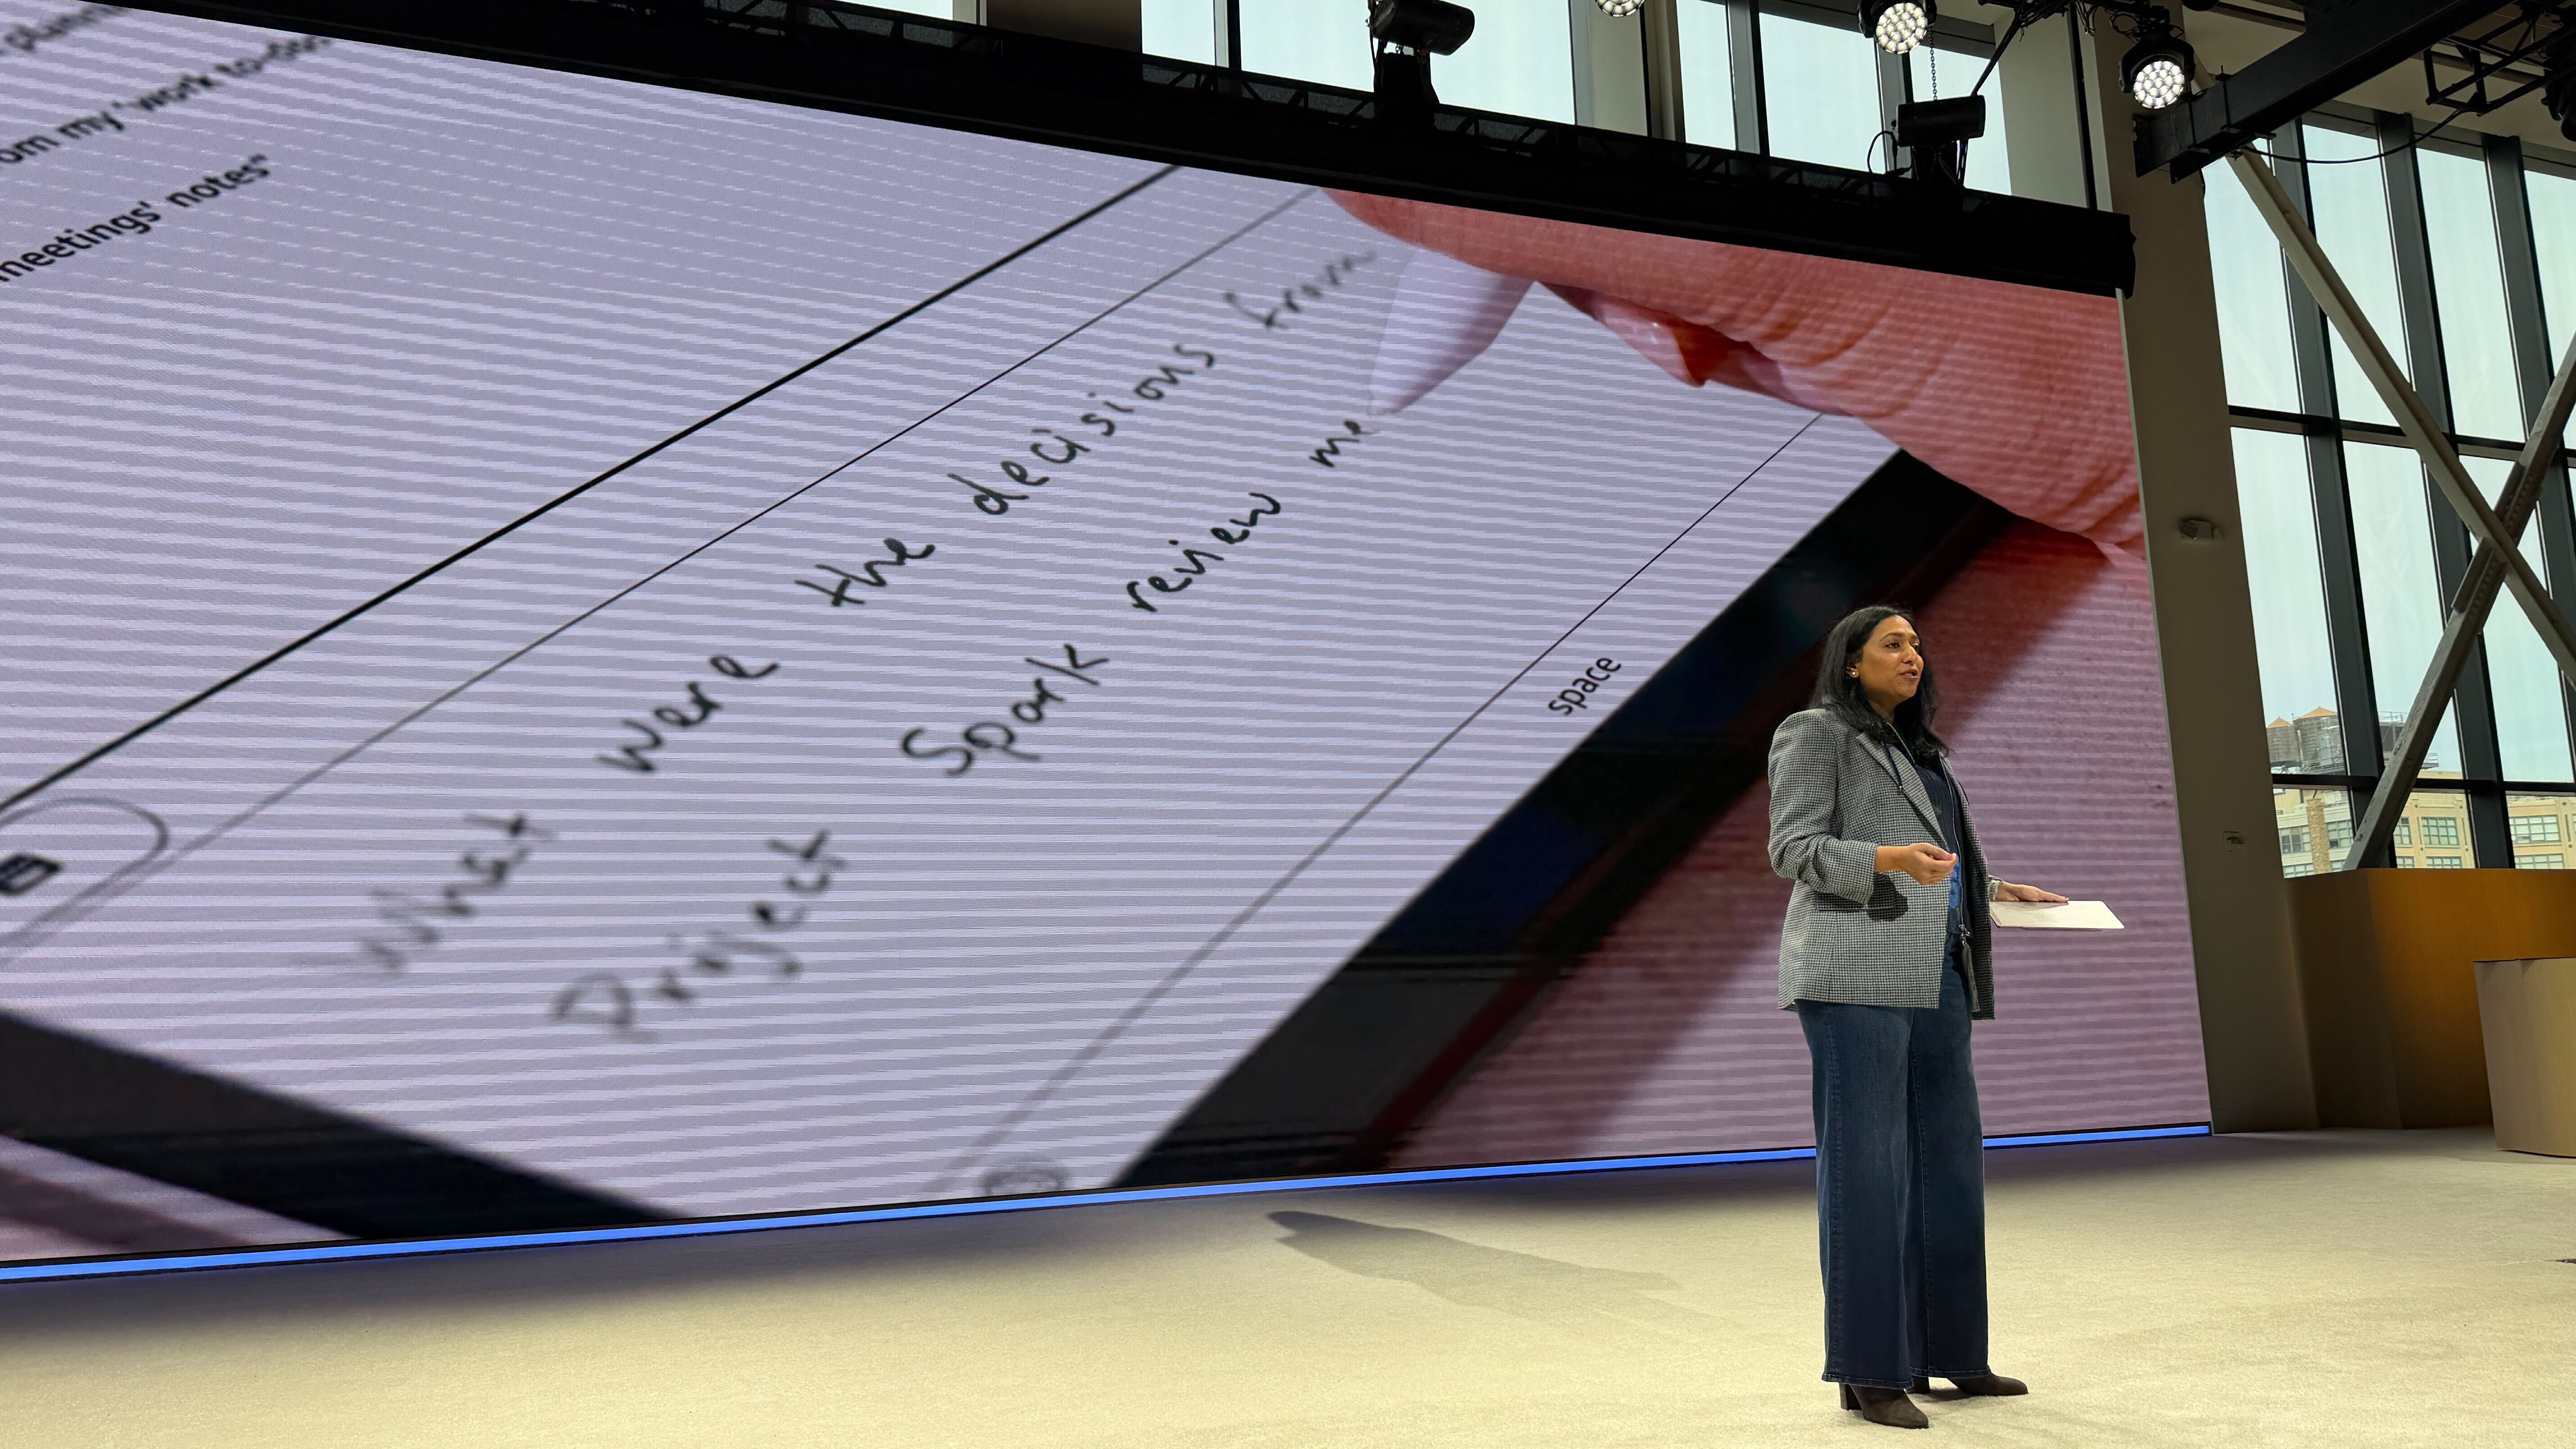 om my 'work to-dos'
meetings' notes"
What were the decisions from
Project Spark review me
space